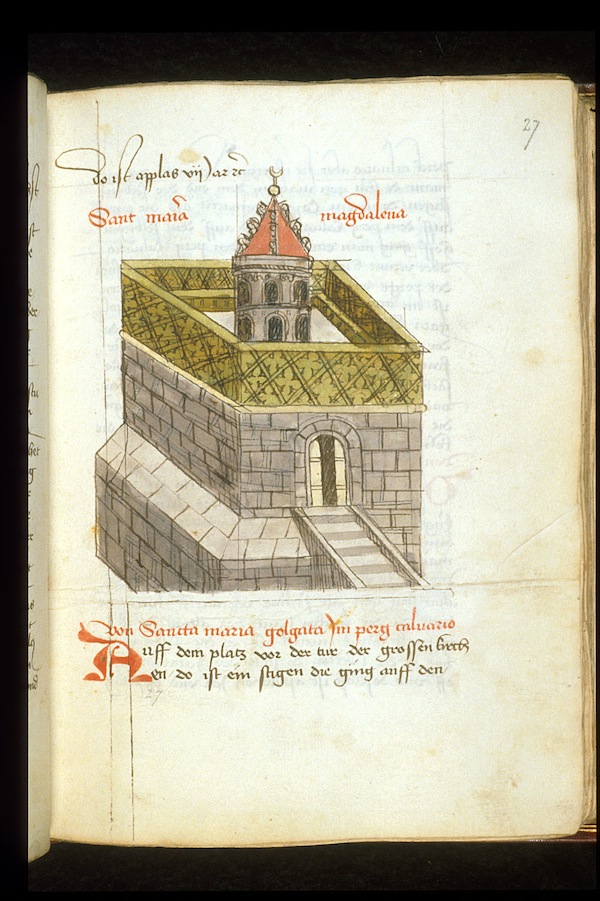 27
do ist applas vij Jar rc
Sant maria magdalena
von Sancta maria golgata Jm perg calvario
Auff dem platz vor der ture der grossen kirch
en do ist ein stigen die ging auff den
27